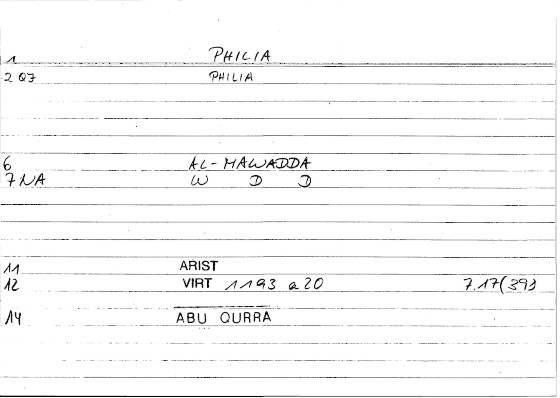 1 PHILIA
2 07 PHILIA
6 AL-MAWADDA
7 NA W D D
11 ARIST
12 VIRT 1193 a 20 7.17(39)
14 ABU QURRA